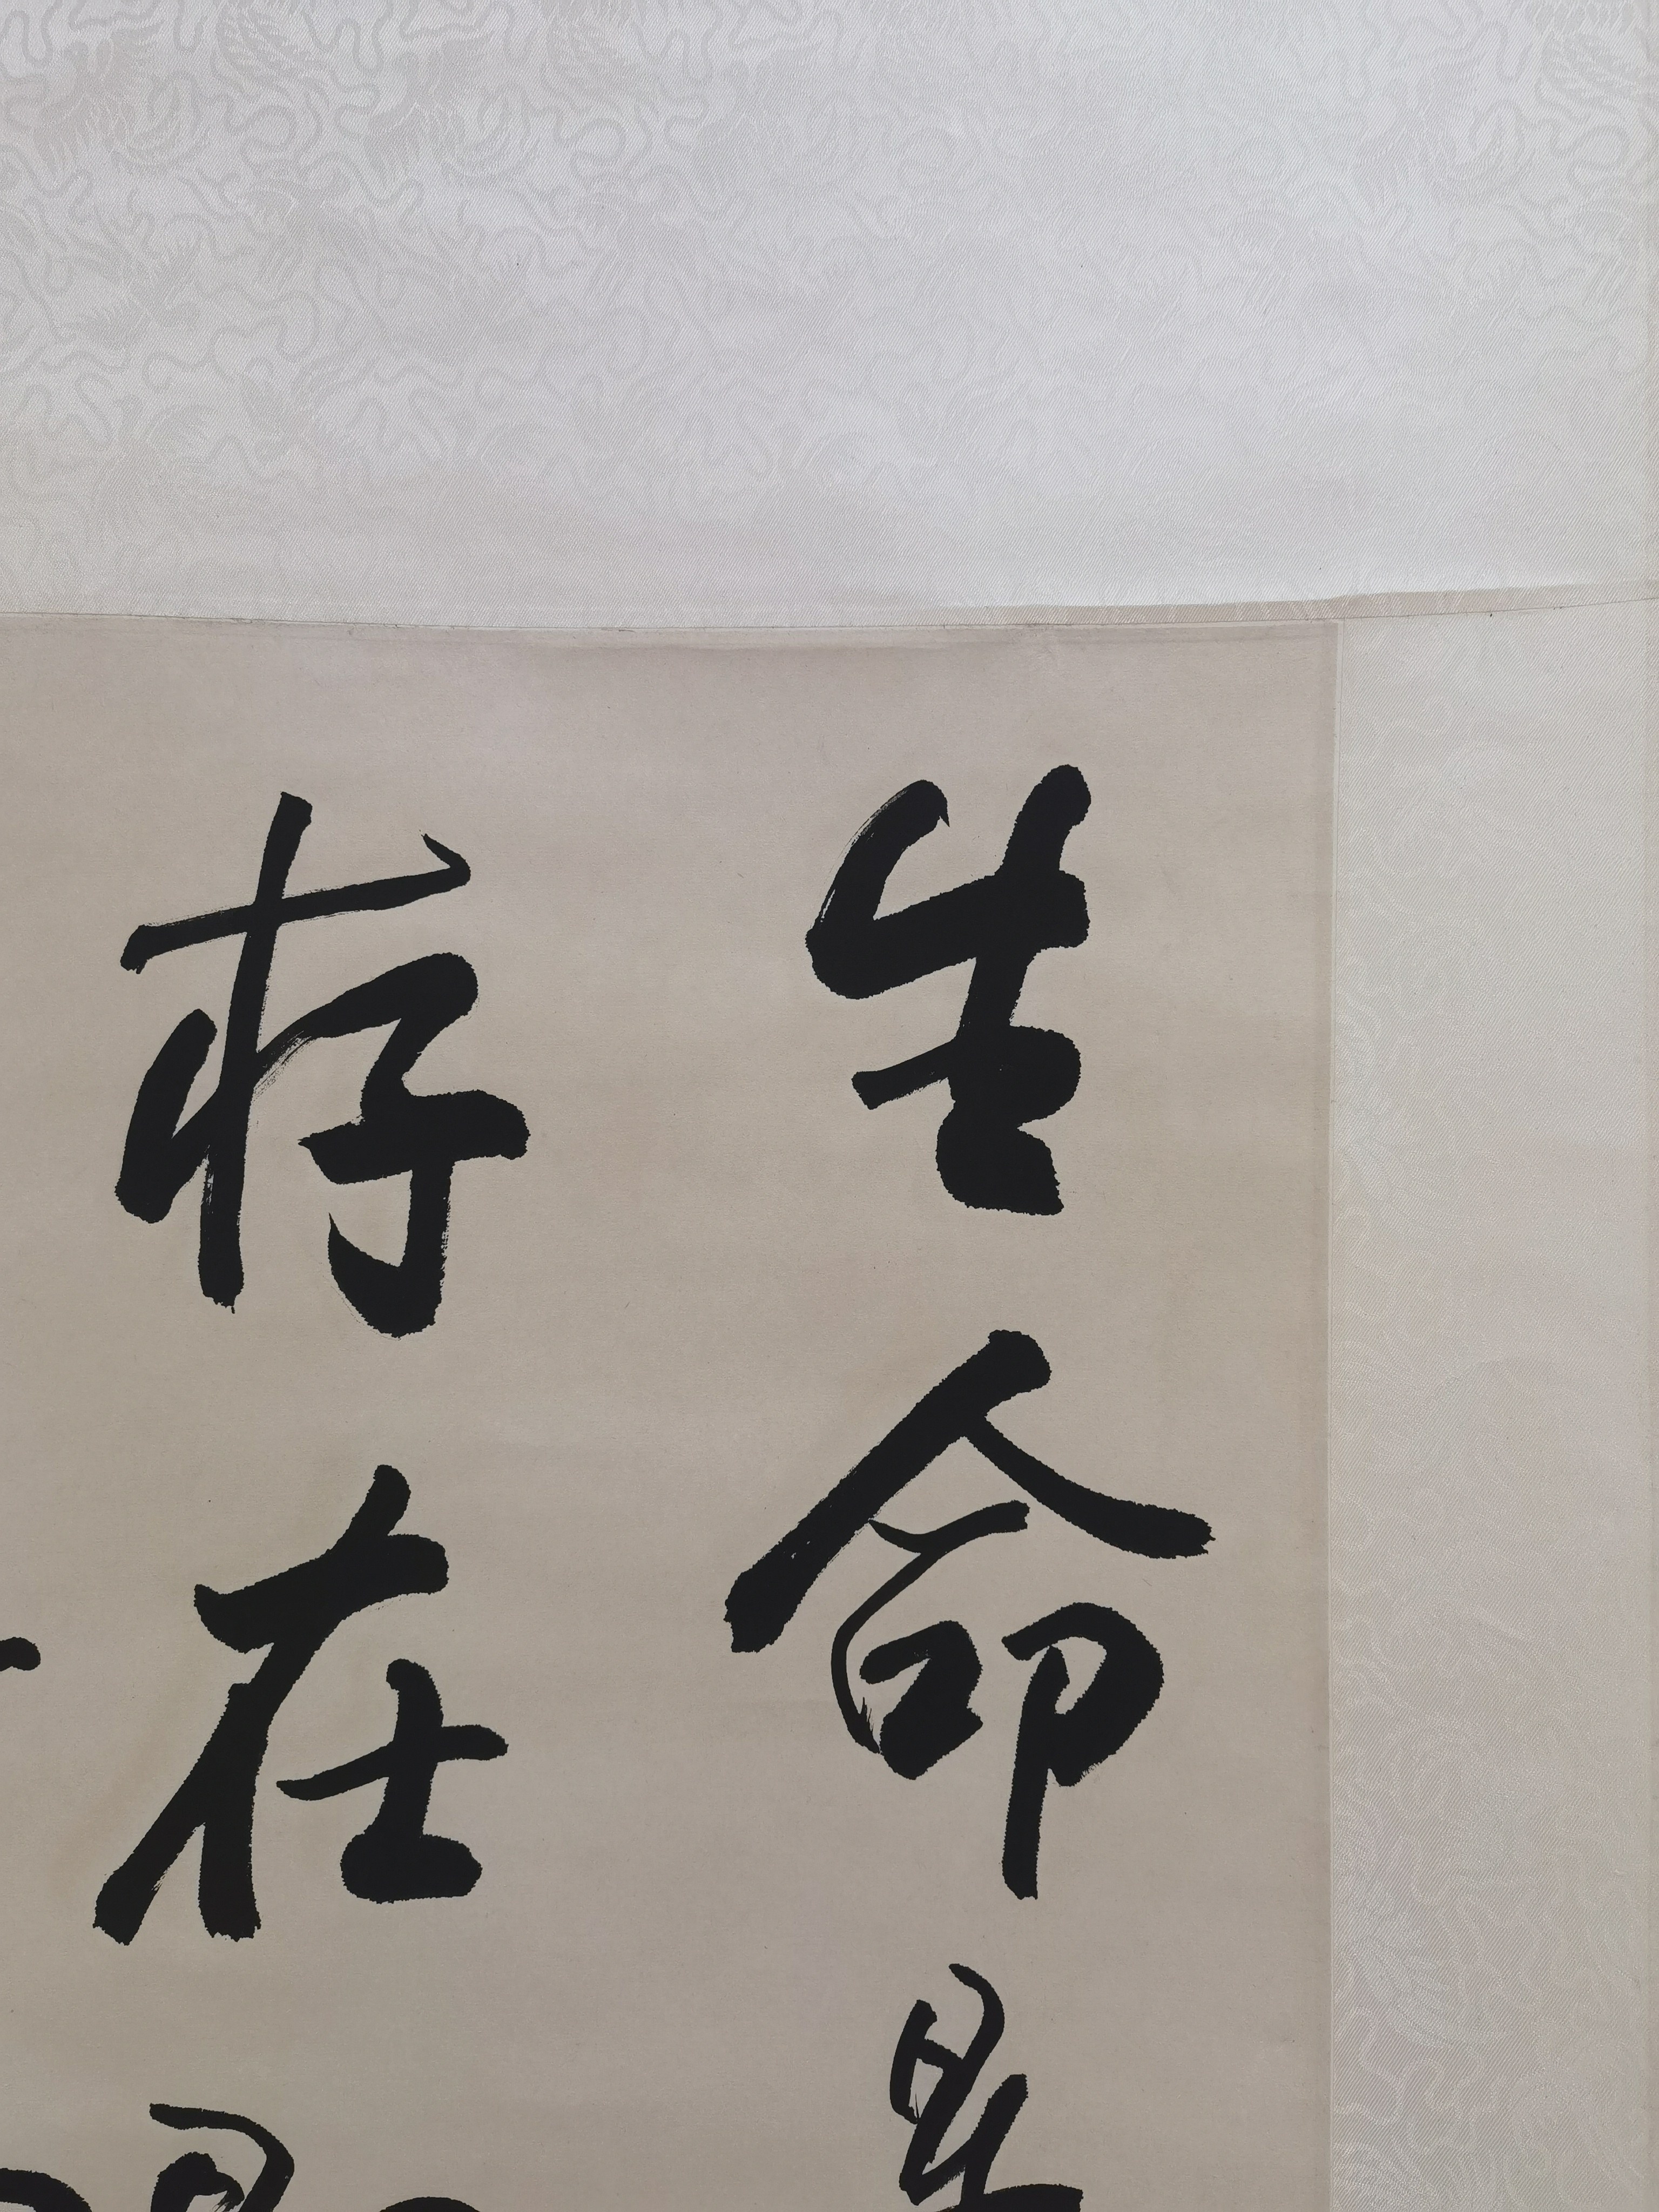 生命是
存在